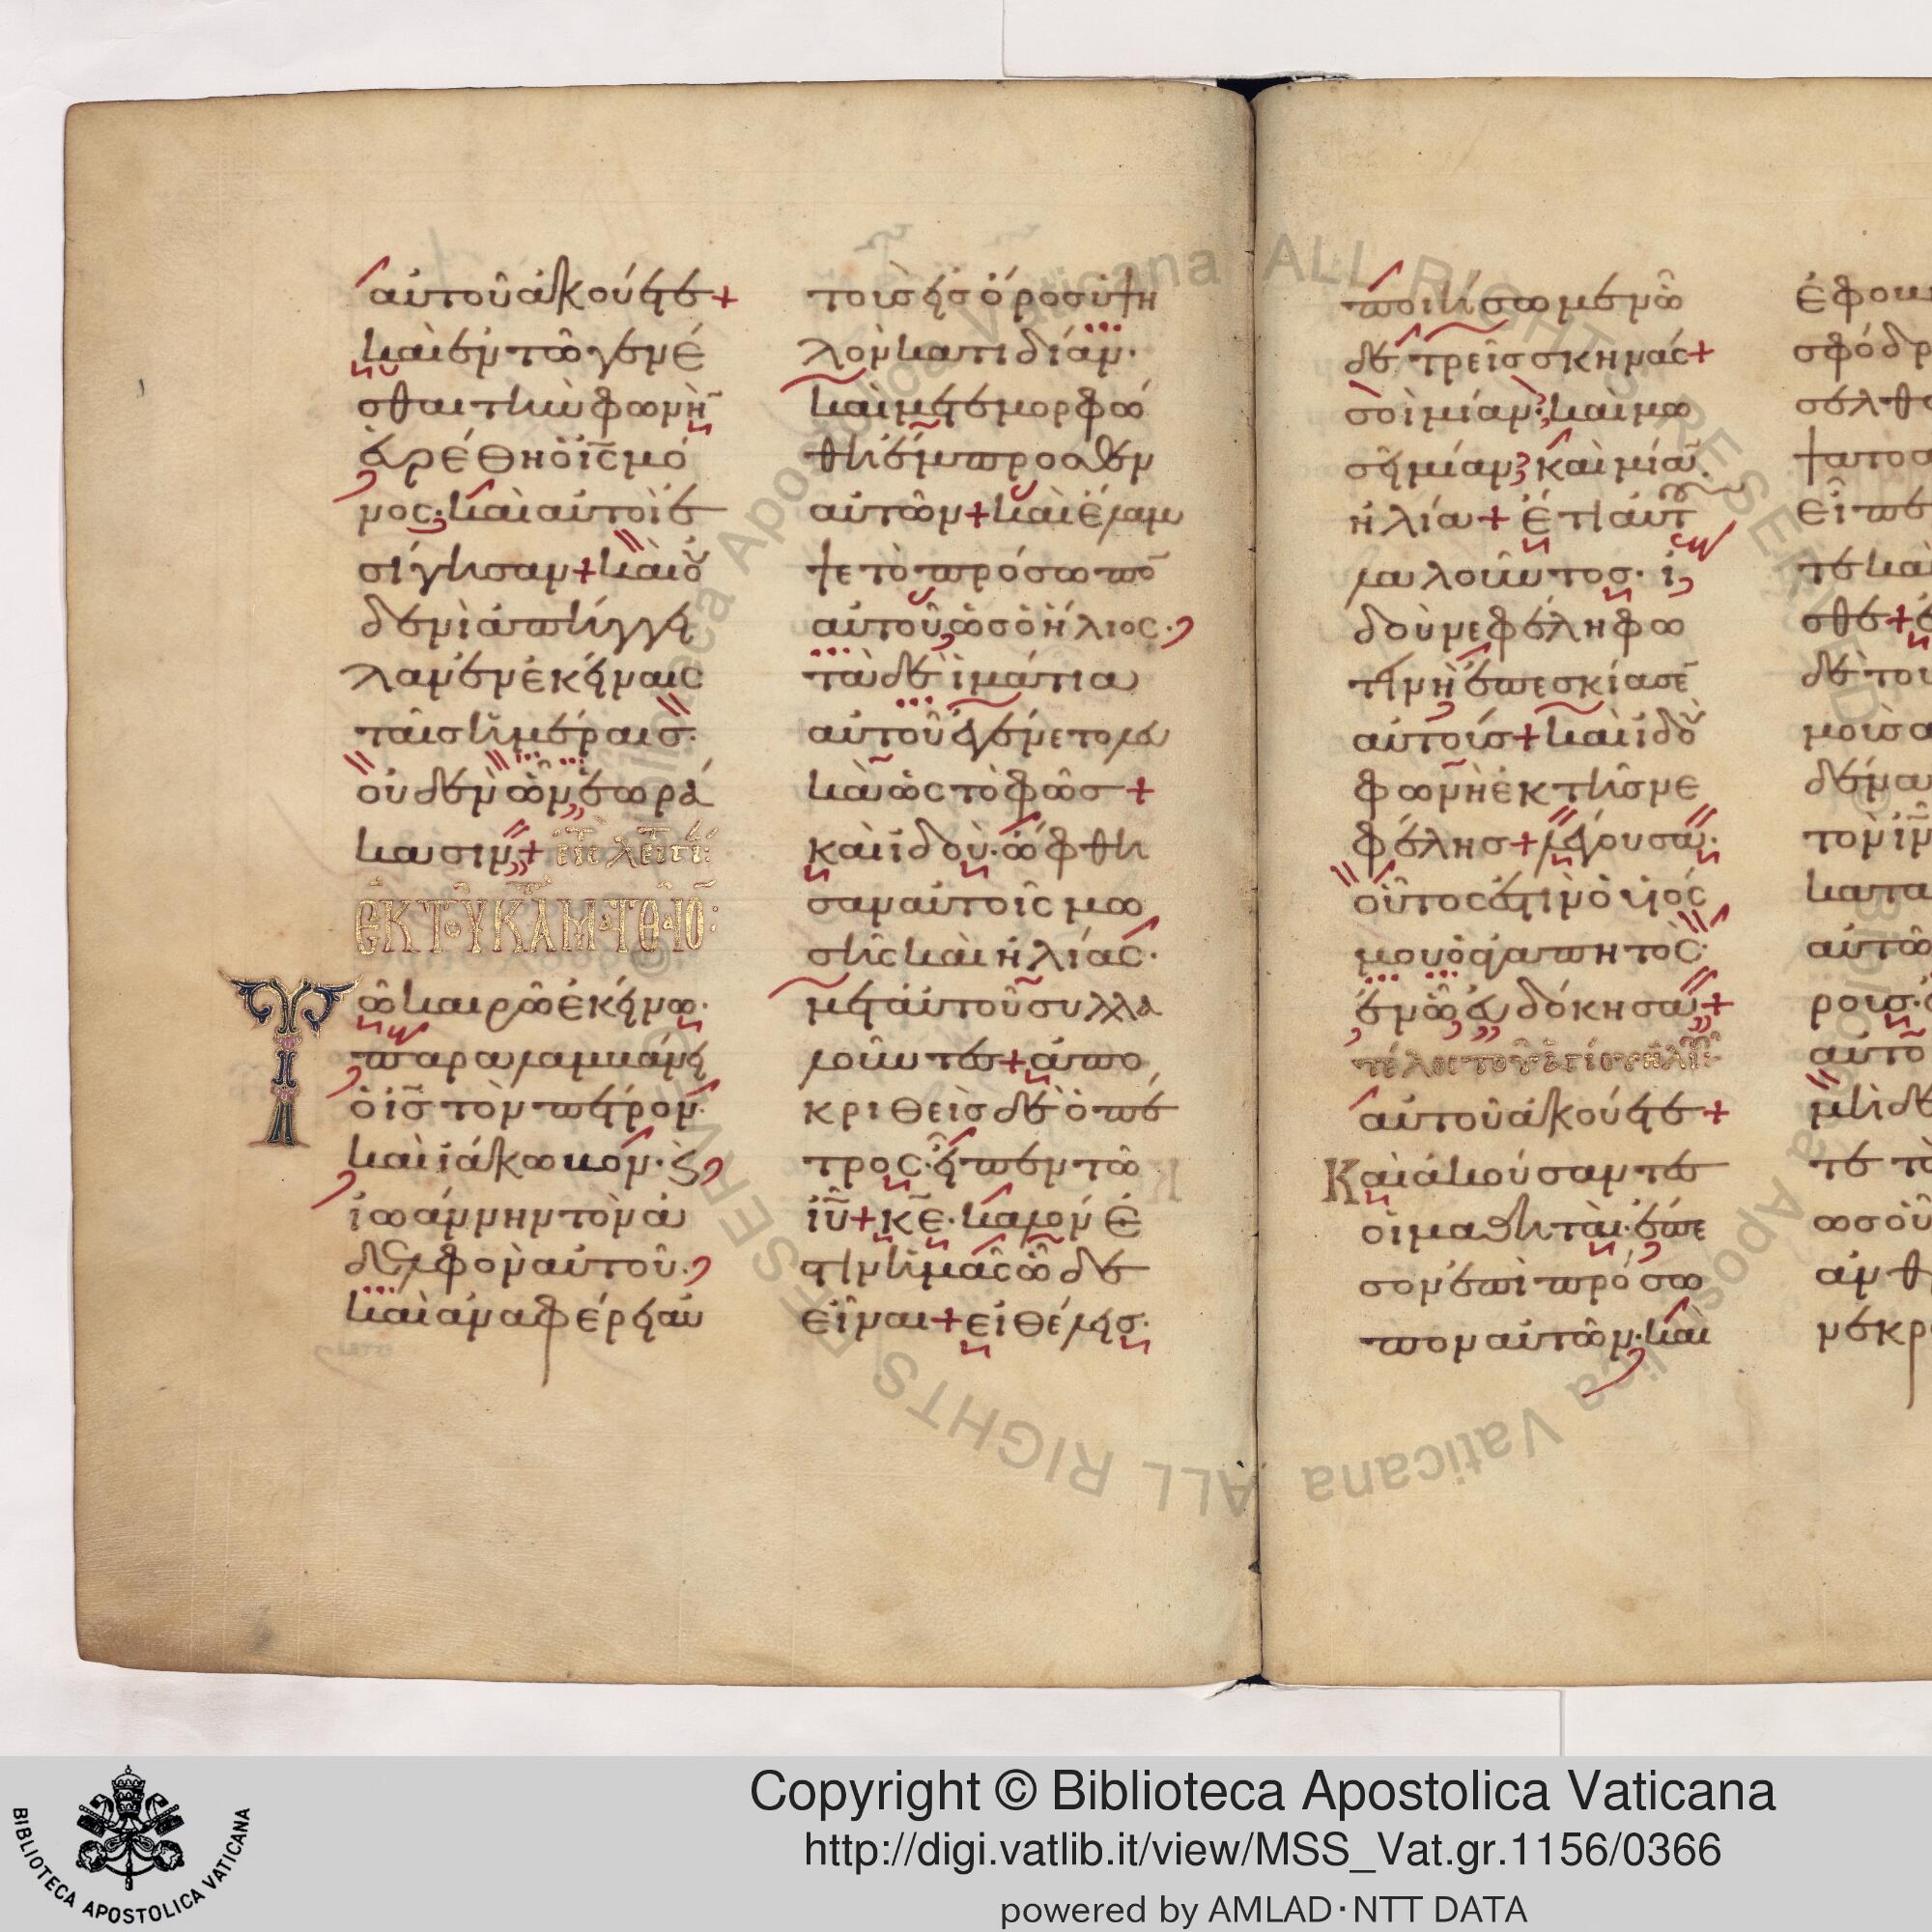 αὐτοῦ ἀκούετε+
καὶ ἐν τῶ γενέ
σθαι τὴν φωνὴ
εὑρέθη ὁ ις μό
νος· καὶ αὐτοὶ ἐ
σίγησαν+ καὶ οὐ
δενὶ ἀπήγγει
λαν ἐν ἐκείναις
ταῖς ἡμέραις·
οὐδὲν ὧν ἑωρά
κασιν+
ἐκ τοῦ κατὰ Ματθαῖο:
Τῶ καιρῶ ἐκείνω·
παραλαμβάνει
ὁ ις τὸν πέτρον·
καὶ ἰάκωβον· ϗ
ἰωάννην τὸν ἀ
δελφὸν αὐτοῦ·
καὶ ἀναφέρει αὐ
τοὺς εἰς ὄρος ὑψη
λὸν κατιδίαν·
καὶ μετεμορφώ
θη ἔμπροσθεν
αὐτῶν+ καὶ ἔλαμ
ψε τὸ πρόσωπο
αὐτοῦ ὡς ὁ ἥλιος·
τὰ δὲ ἱμάτια
αὐτοῦ ἐγένετο λευ
κὰ ὡς τὸ φῶς+
καὶ ἰδοὺ· ὤφθη
σαν αὐτοῖς μω
σῆς καὶ ἠλίας·
μετ αὐτοῦ συλλα
λοῦντες+ ἀπο
κριθεὶς δὲ ὁ πέ
τρος· εἶπεν τῶ
ιυ+ κε· καλόν ἐ
στιν ἡμᾶς ὧδε
εἶναι+ εἰ θέλεις·
ποιήσωμεν ὧ
δε τρεῖς σκηνάς+
σοὶ μίαν· καὶ μω
σῆ μίαν· καὶ μία
ἠλία+ ἔτι αὐτ
λαλοῦντος· ἰ
δοὺ νεφέλη φω
τινὴ ἐπεσκίασε
αὐτοίς+ καὶ ἰδοὺ
φωνὴ ἐκ τῆς νε
φέλης+ λέγουσα·
οὗτος ἐστιν ὁ υἱός
μου ὁ ἀγαπητὸς·
ἐν ὧ εὐδόκησα+
αὐτοῦ ἀκούετε+
Καὶ ἀκούσαντες
οἱ μαθηταὶ· ἔπε
σον ἐπὶ πρόσω
πον αὐτῶν· καὶ
ἐφοβή
σφόδρ
σελθ
ψατο α
εἶπε
τε κα
σθε+ ἐ
δὲ του
μοὺς α
δένα
τὸν ιν
κατα
αὐτῶ
ροις·
αὐτο
μὴ δε
τε τὸ
ως οὗ
ανθ
νεκρ
Copyright © Biblioteca Apostolica Vaticana
http://digi.vatlib.it/view/MSS_Vat.gr.1156/0366
powered by AMLAD·NTT DATA
BIBLIOTECA APOSTOLICA VATICANA